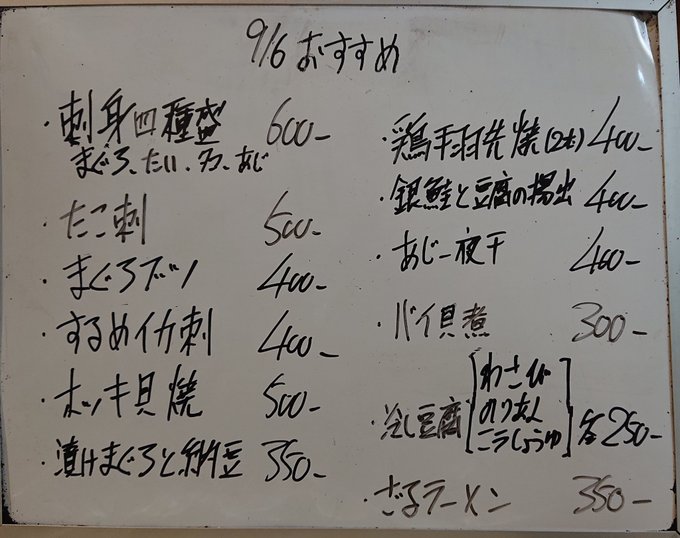 9/6 おすすめ
・刺身四種盛 600-
まぐろ、たい、タコ、あじ
・たこ刺 500-
・まぐろブツ 400-
・するめイカ刺 400-
・ホッキ貝焼 500-
・漬けまぐろと納豆 350-
・鶏手羽先焼(2本) 400-
・銀鮭と豆腐の揚出 400-
・あじ一夜干 400-
・バイ貝煮 300-
・冷し豆腐 各250-
わさび
のりあん
こうじしょうゆ
・ざるラーメン 350-